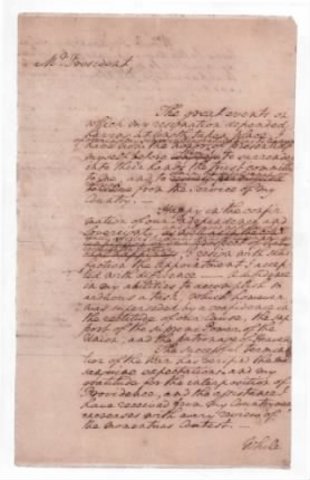 Mr. President
The great events on
which my resignation depended,
having at length taken place, I
have now the honor of presenting
myself before to surrender
into their hands the trust committed
to me, and to
from the Service of my
Country. —
Happy in the confir-
mation of our Independence and
Sovereignty,
I resign with satis-
faction the Appointment I accep-
ted with diffidence — a diffidence
in my abilities to accomplish so
arduous a task, which however
was superseded by a confidence in
the rectitude of our Cause, the sup-
port of the supreme Power of the
Union, and the patronage of Heaven.
The successful termina-
tion of the War has verified the
sanguine expectations, and my
gratitude for the interposition of
Providence, and the assistance I
have received from my Countrymen
encreases with every review of
the momentous Contest. —
While